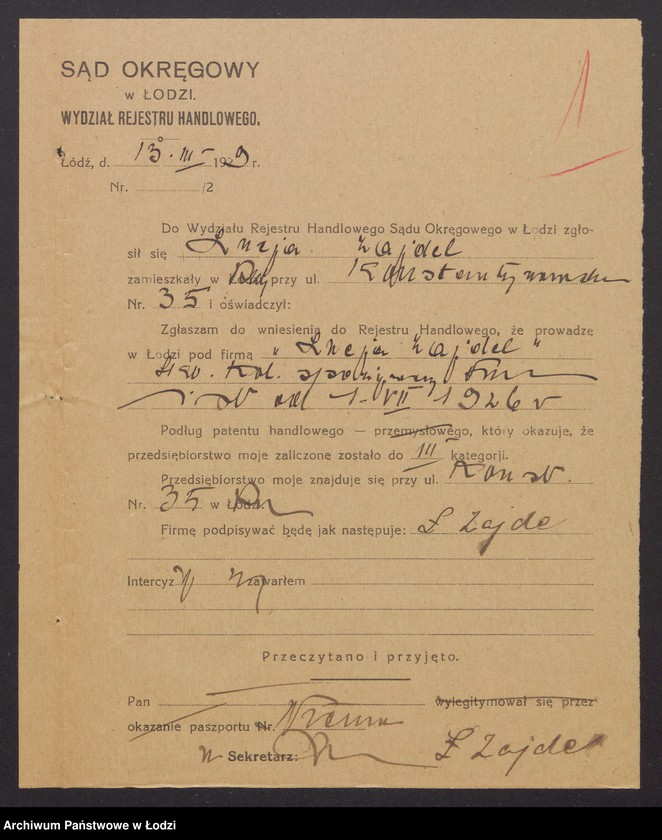 SĄD OKRĘGOWY
w ŁODZI.
WYDZIAŁ REJESTRU HANDLOWEGO.
1
Łódź, d. 13 · III 1929 r.
Nr. /2
Do Wydziału Rejestru Handlowego Sądu Okręgowego w Łodzi zgło-
sił się Łucja Zajdel
zamieszkały w Łodzi przy ul. Konstantynowska
Nr. 35 i oświadczył:
Zgłaszam do wniesienia do Rejestru Handlowego, że prowadzę
w Łodzi pod firmą „Łucja Zajdel"
kol. spożywczy
od 1-VII 1926 r
Podług patentu handlowego — przemysłowego, który okazuje, że
przedsiębiorstwo moje zaliczone zostało do III kategorji.
Przedsiębiorstwo moje znajduje się przy ul. Konst.
Nr. 35 w Łodzi.
Firmę podpisywać będę jak następuje: Ł Zajdel
Intercyzy zawarłem
Przeczytano i przyjęto.
Pan wylegitymował się przez
okazanie paszportu Nr.
Sekretarz: Ł Zajdel
Archiwum Państwowe w Łodzi